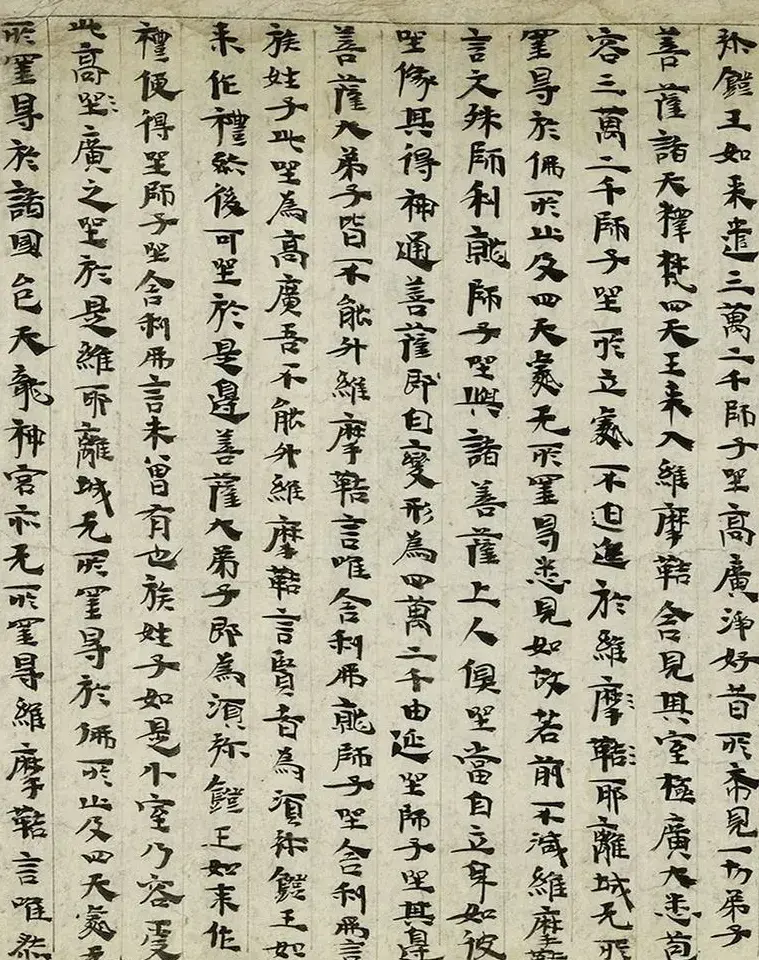 弥鐙王如来遣三萬二千師子坐高廣淨好昔所希見一切弟子
菩薩諸天釋梵四天王来入維摩鞊舍見其室極廣大悉苞
容三萬二千師子坐所立處不迫迮於維摩鞊耶離城无所
罣㝵於佛所止及四天處无所罣㝵悉見如故若前不減維摩鞊
言文殊師利就師子坐與諸菩薩上人俱坐當自立身如彼
坐像其得神通菩薩即自變形為四萬二千由延坐師子坐其邊
菩薩大弟子皆不能升維摩鞊言唯舍利弗就師子坐舍利弗言
族姓子此坐為高廣吾不能升維摩鞊言賢者為湏弥鐙王如
来作禮然後可坐於是邊善薩大弟子即為湏弥鐙王如来作
禮便得坐師子坐舍利弗言未曾有也族姓子如是小室乃容受
此高坐廣之坐於是維耶離城无所罣㝵於佛所止及四天處无
所罣㝵於諸國邑天龍神宮亦无所罣㝵維摩鞊言唯然